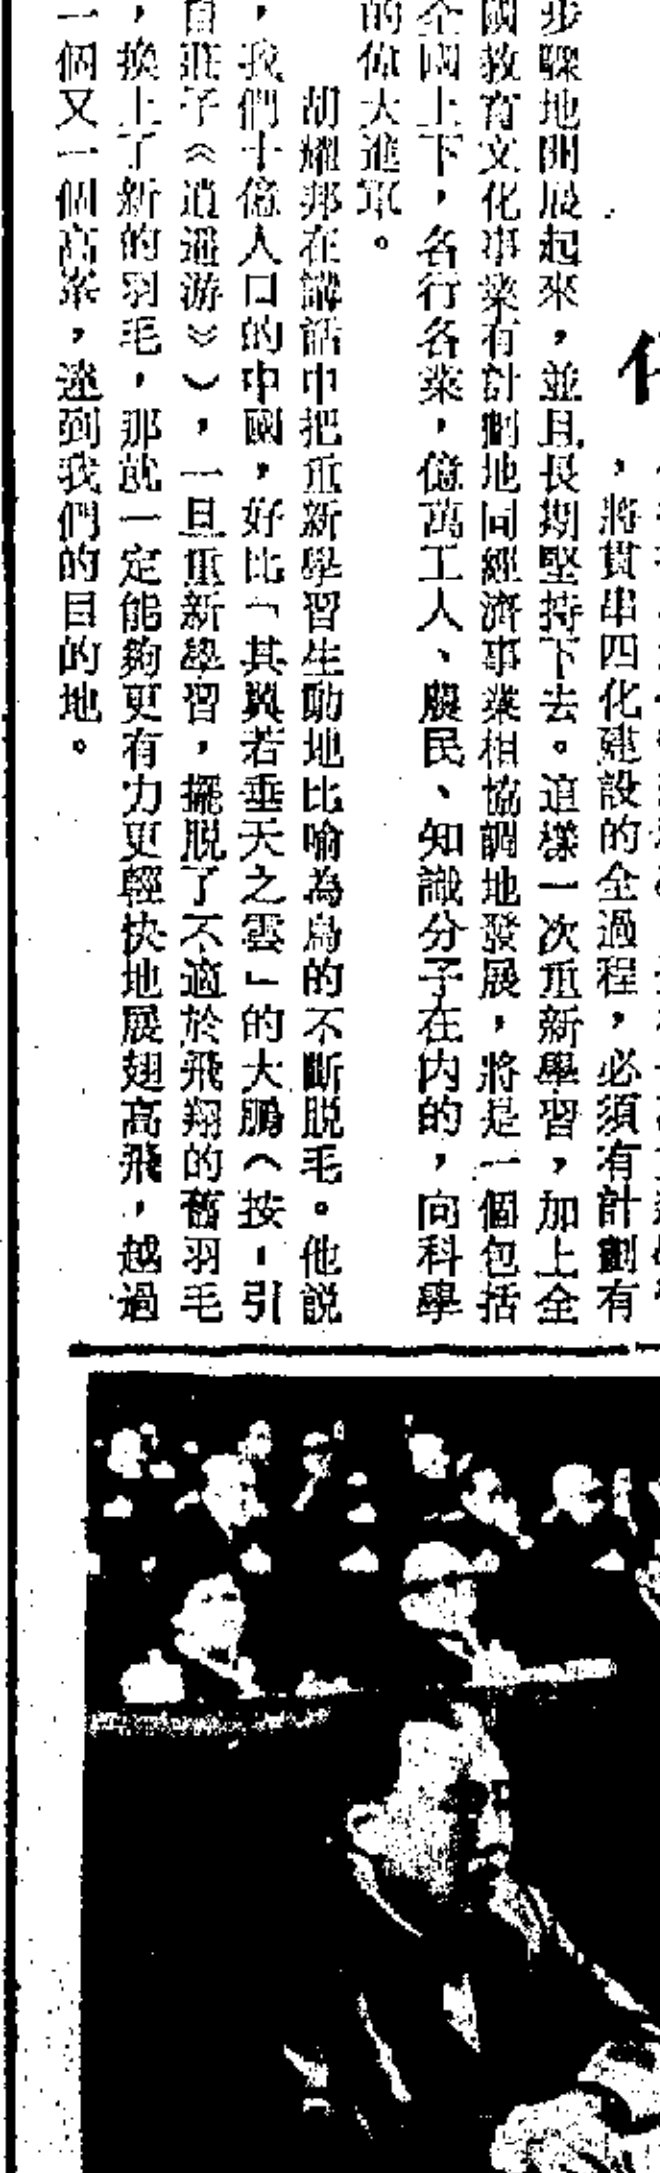 ，將貫串四化建設的全過程，必須有計劃有
步驟地開展起來，並且長期堅持下去。這樣一次重新學習，加上全
國教育文化事業有計劃地同經濟事業相協調地發展，將是一個包括
全國上下，各行各業，億萬工人、農民、知識分子在内的，向科學
的偉大進軍。
胡耀邦在講話中把重新學習生動地比喻為鳥的不斷脱毛。他説
，我們十億人口的中國，好比「其翼若垂天之雲」的大鵬（按：引
自莊子《逍遥游》），一旦重新學習，擺脱了不適於飛翔的舊羽毛
，換上了新的羽毛，那就一定能夠更有力更輕快地展翅高飛，越過
一個又一個高峯，達到我們的目的地。